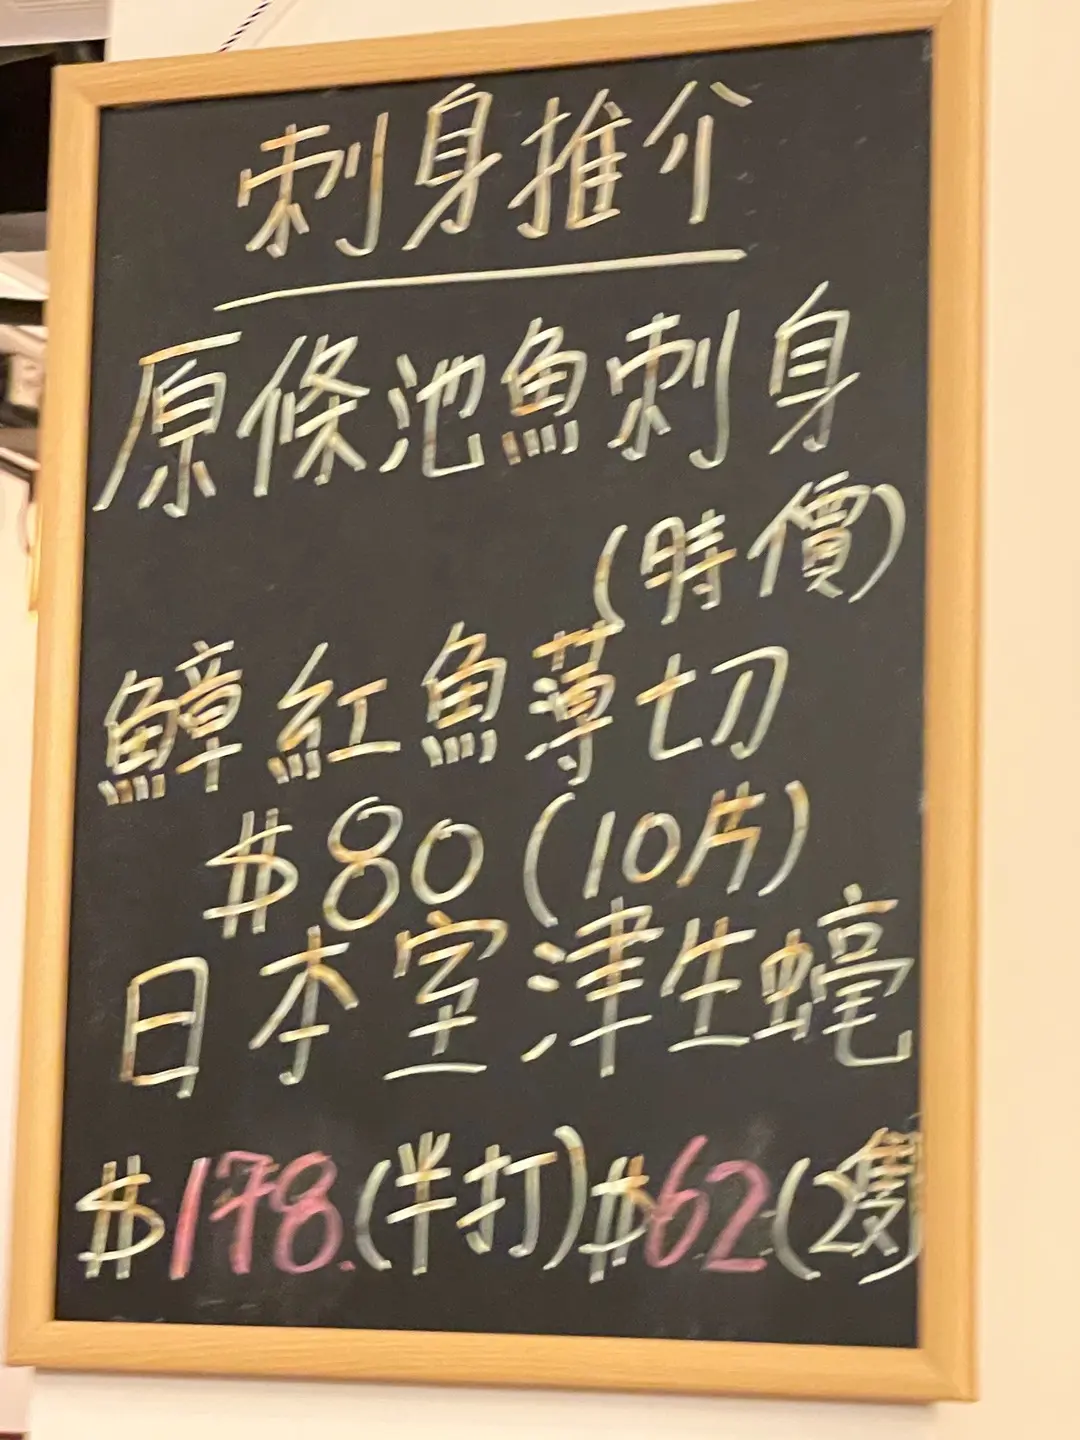 刺身推介
原條池魚刺身
(時價)
鱆紅魚薄切
$80 (10片)
日本室津生蠔
$178.(半打)$62(2隻)